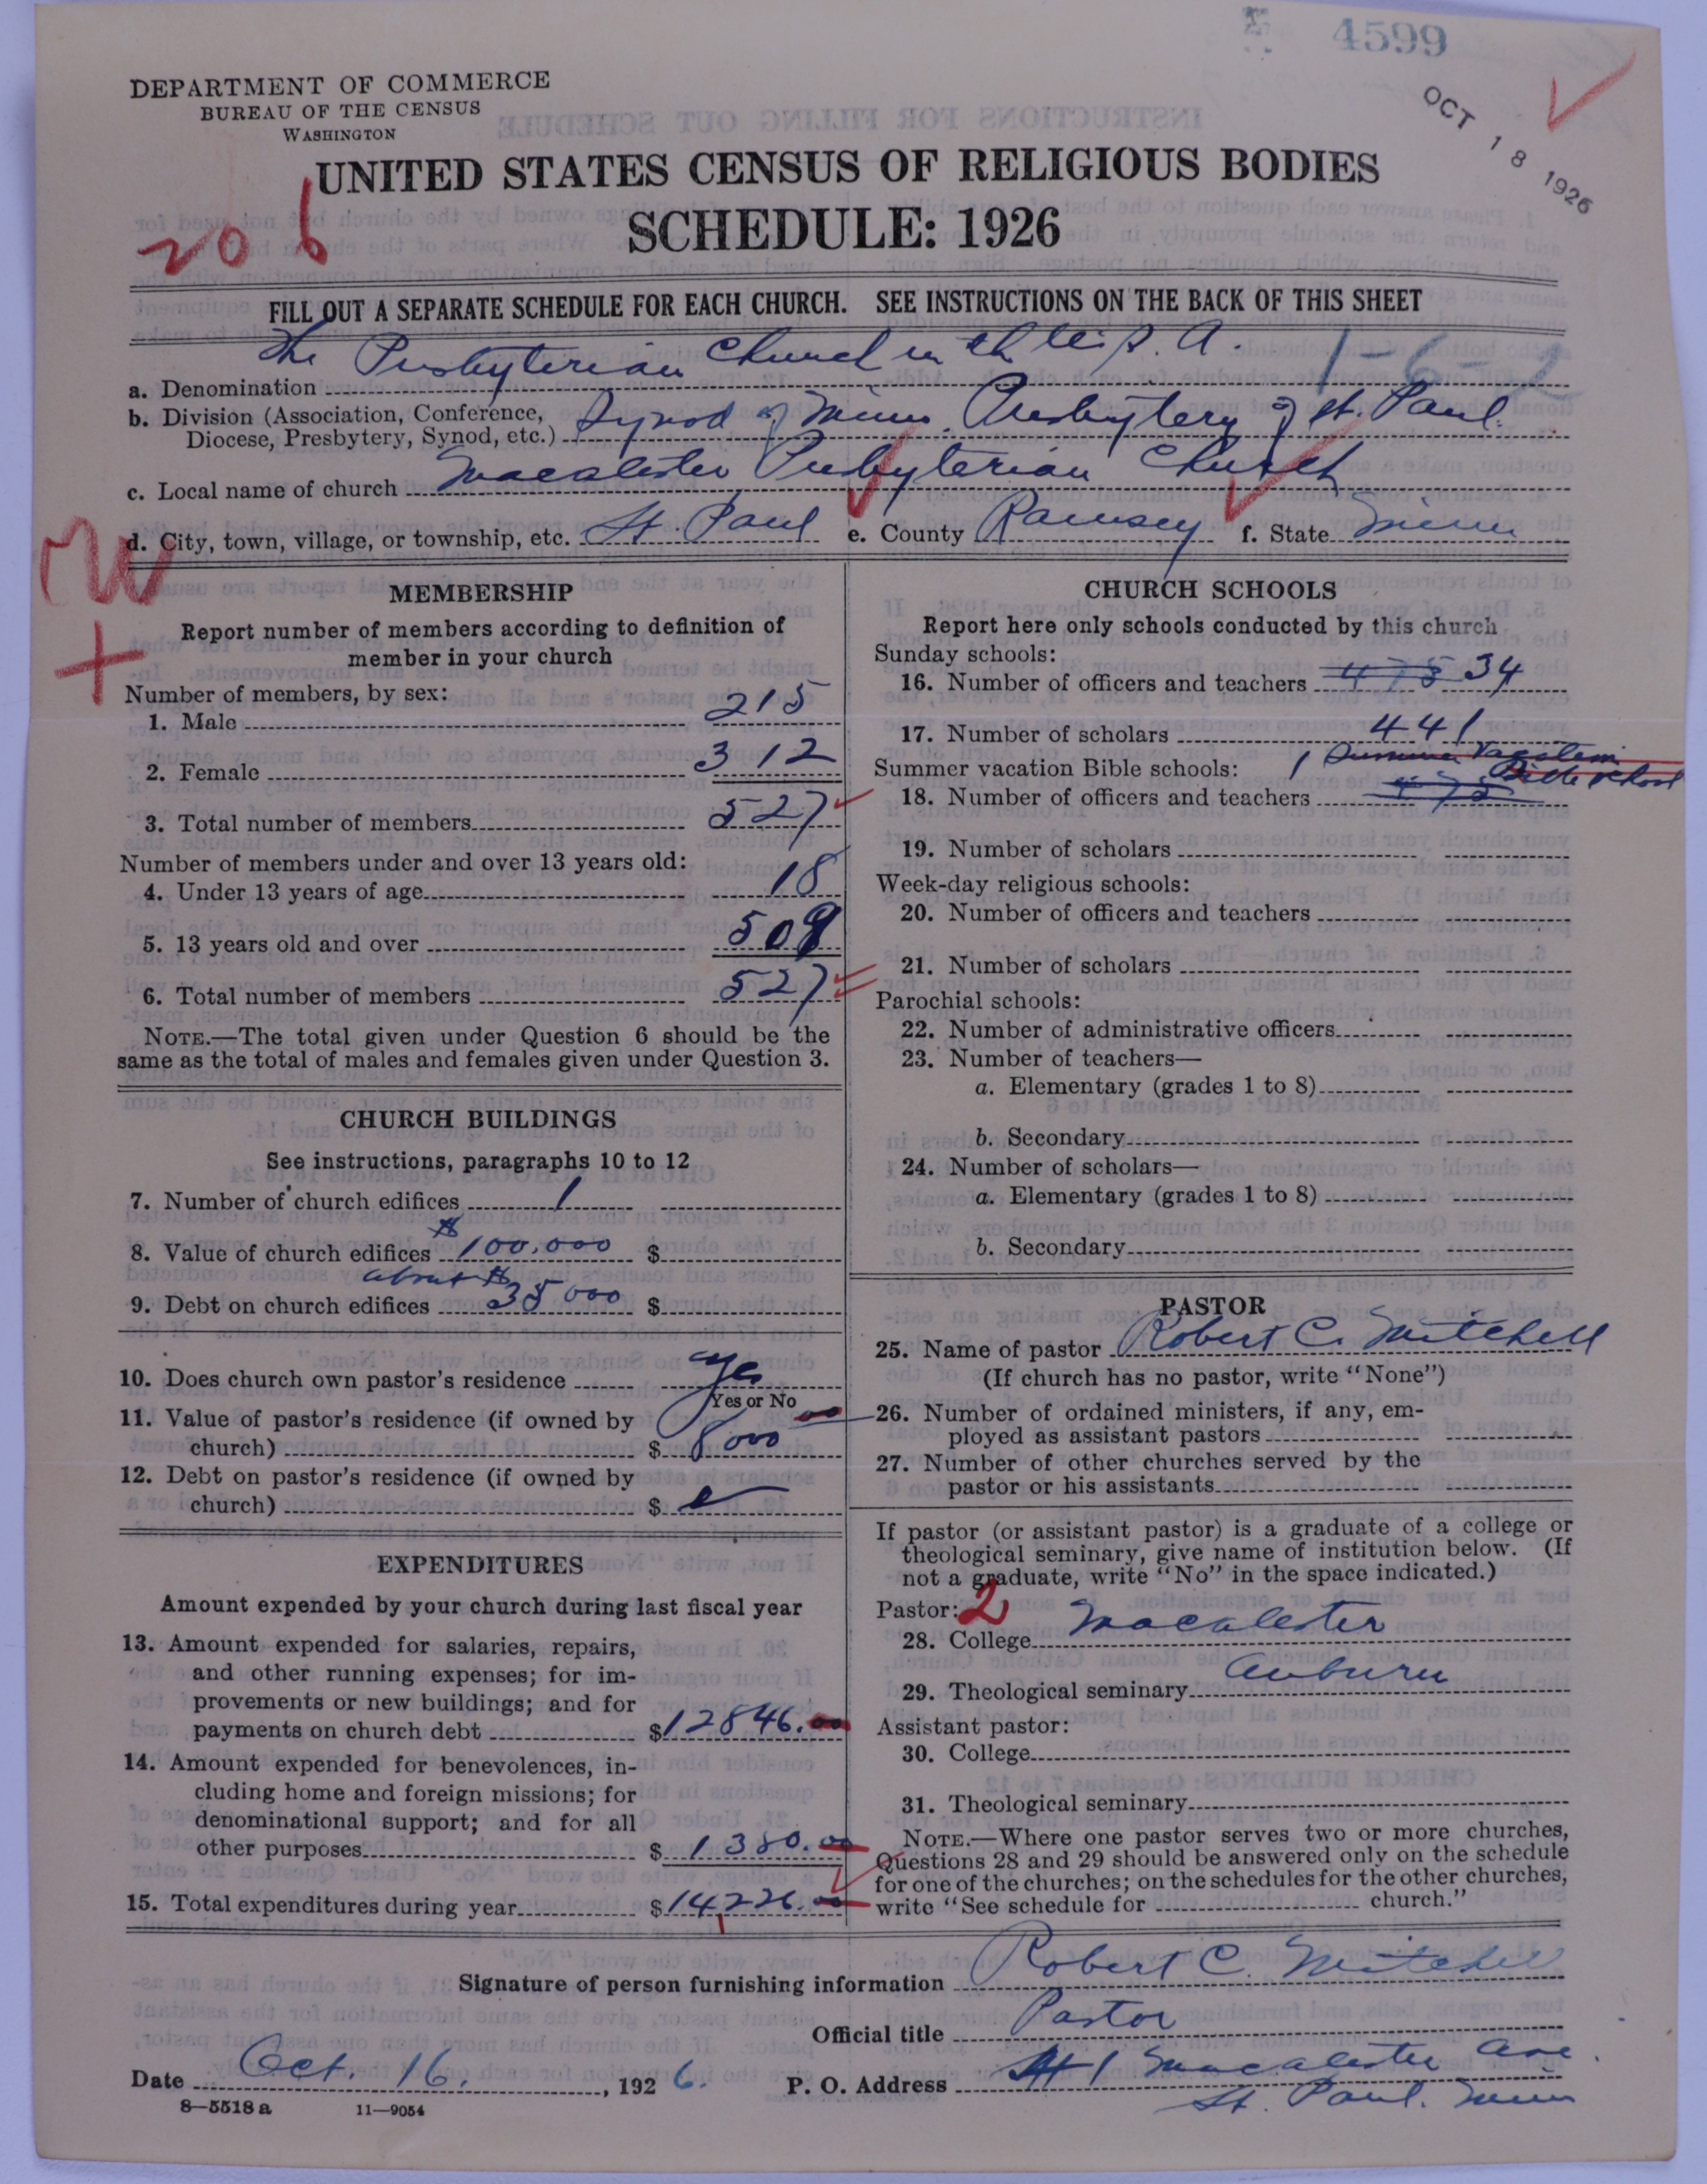 4599
OCT 18 1926
DEPARTMENT OF COMMERCE
BUREAU OF THE CENSUS
WASHINGTON
UNITED STATES CENSUS OF RELIGIOUS BODIES
SCHEDULE: 1926
206
FILL OUT A SEPARATE SCHEDULE FOR EACH CHURCH. SEE INSTRUCTIONS ON THE BACK OF THIS SHEET
a. Denomination The Presbyterian Church in the U.S.A. 1-6-2
b. Division (Association, Conference, Diocese, Presbytery, Synod, etc.) Synod of Minn. Presbytery of St. Paul.
c. Local name of church Macalester Presbyterian Church
d. City, town, village, or township, etc. St. Paul e. County Ramsey f. State Minn
MEMBERSHIP
Report number of members according to definition of
member in your church
Number of members, by sex:
1. Male 215
2. Female 312
3. Total number of members 527
Number of members under and over 13 years old:
4. Under 13 years of age 18
5. 13 years old and over 509
6. Total number of members 527
NOTE.—The total given under Question 6 should be the
same as the total of males and females given under Question 3.
CHURCH BUILDINGS
See instructions, paragraphs 10 to 12
7. Number of church edifices 1
8. Value of church edifices $100,000 $
9. Debt on church edifices about $35000 $
10. Does church own pastor's residence yes
Yes or No
11. Value of pastor's residence (if owned by
church) $ 8000 00
12. Debt on pastor's residence (if owned by
church) $
EXPENDITURES
Amount expended by your church during last fiscal year
13. Amount expended for salaries, repairs,
and other running expenses; for im-
provements or new buildings; and for
payments on church debt $12846.00
14. Amount expended for benevolences, in-
cluding home and foreign missions; for
denominational support; and for all
other purposes $ 1380.00
15. Total expenditures during year $14,226.00
CHURCH SCHOOLS
Report here only schools conducted by this church
Sunday schools:
16. Number of officers and teachers 475 34
17. Number of scholars 441
Summer vacation Bible schools: 1 Summer Vacation Bible School
18. Number of officers and teachers 475
19. Number of scholars
Week-day religious schools:
20. Number of officers and teachers
21. Number of scholars
Parochial schools:
22. Number of administrative officers
23. Number of teachers—
a. Elementary (grades 1 to 8)
b. Secondary
24. Number of scholars—
a. Elementary (grades 1 to 8)
b. Secondary
PASTOR
25. Name of pastor Robert C. Mitchell
(If church has no pastor, write "None")
26. Number of ordained ministers, if any, em-
ployed as assistant pastors
27. Number of other churches served by the
pastor or his assistants
If pastor (or assistant pastor) is a graduate of a college or
theological seminary, give name of institution below. (If
not a graduate, write "No" in the space indicated.)
Pastor: 2
28. College Macalester
29. Theological seminary Auburn
Assistant pastor:
30. College
31. Theological seminary
NOTE.—Where one pastor serves two or more churches,
Questions 28 and 29 should be answered only on the schedule
for one of the churches; on the schedules for the other churches,
write "See schedule for church."
Signature of person furnishing information Robert C. Mitchell
Official title Pastor
Date Oct. 16, 1926. P. O. Address 41 Macalester Ave.
St. Paul. Minn
8—5518a 11—9054